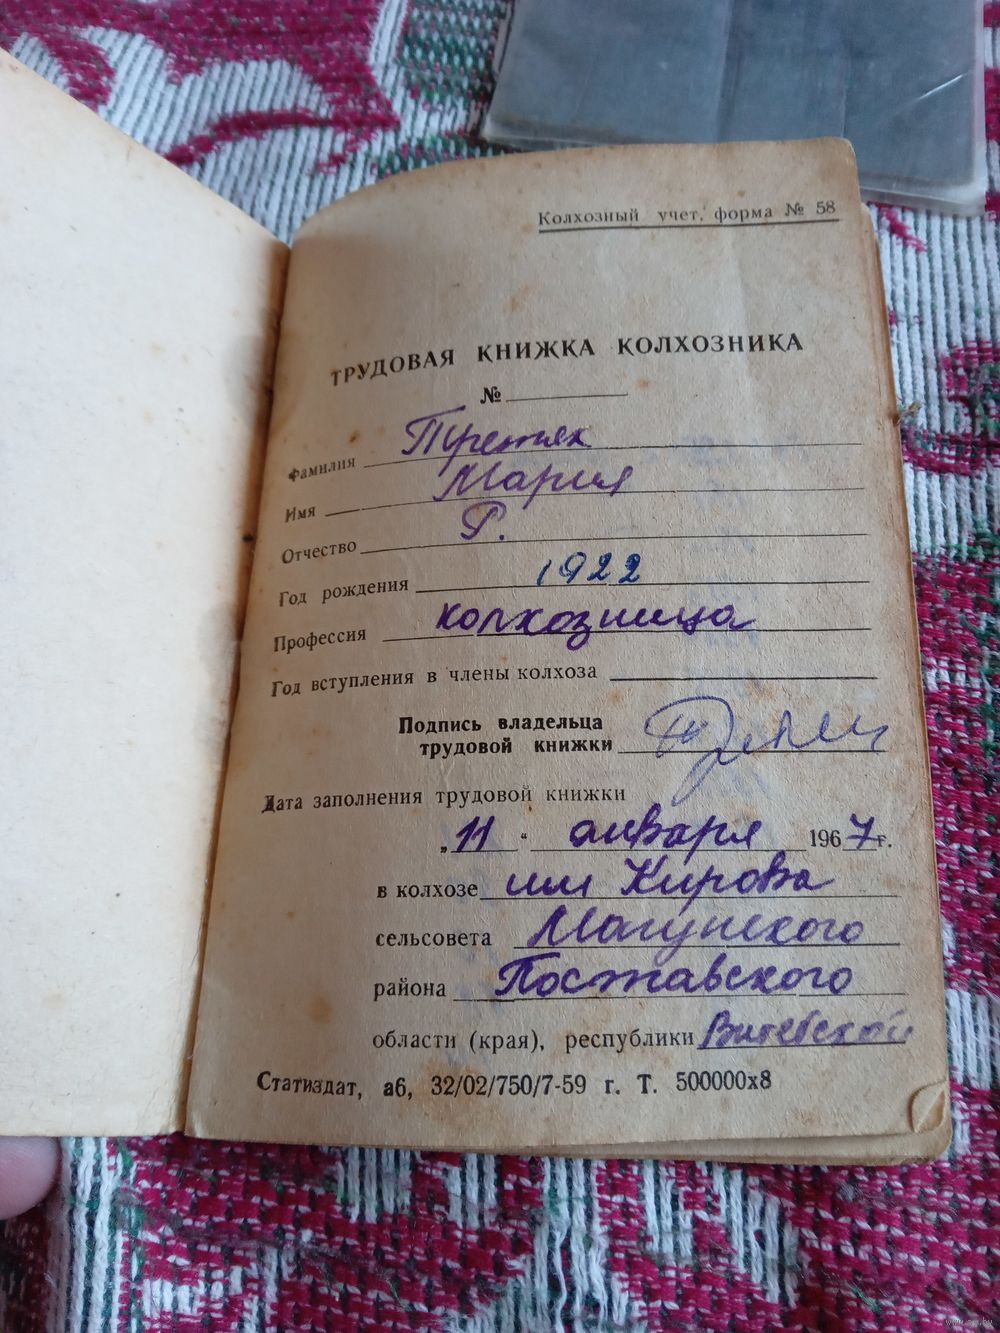 Колхозный учет, форма № 58
ТРУДОВАЯ КНИЖКА КОЛХОЗНИКА
№
Фамилия Третяк
Имя Мария
Отчество Р.
Год рождения 1922
Профессия колхозница
Год вступления в члены колхоза
Подпись владельца
трудовой книжки
Дата заполнения трудовой книжки
„11“ января 1967 г.
в колхозе им Кирова
сельсовета Магунского
района Поставского
области (края), республики Витебской
Статиздат, а6, 32/02/750/7-59 г. Т. 500000х8